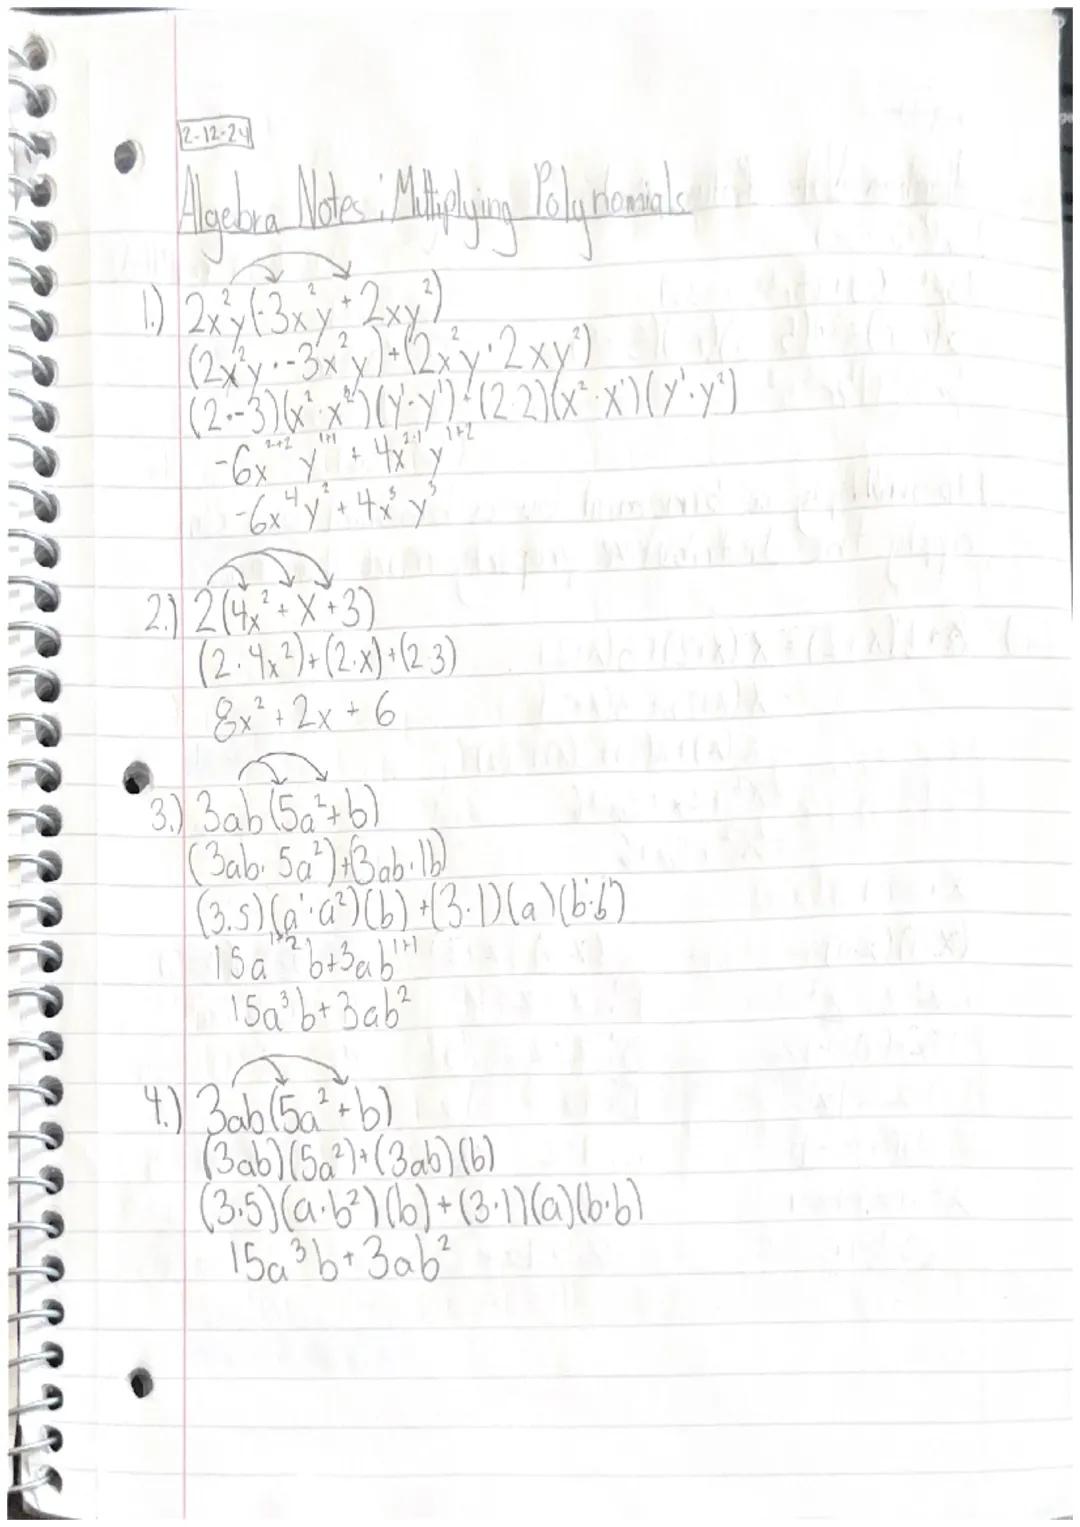 2-12-24
Algebra Notes: Multiplying Polynomials
1.) 2x²y(-3x²y + 2xy²)
(2x²y · -3x²y) + (2x²y · 2xy²)
(2·-3)(x²·x²)(y¹·y¹) + (2·2)(x²·x¹)(y¹·y²)
-6x²⁺²y¹⁺¹ + 4x²·¹y¹⁺²
-6x⁴y² + 4x³y³
2.) 2(4x² + x + 3)
(2·4x²) + (2·x) + (2·3)
8x² + 2x + 6
3.) 3ab(5a² + b)
(3ab · 5a²) + (3ab · 1b)
(3·5)(a¹·a²)(b) + (3·1)(a)(b¹·b¹)
15a¹⁺²b + 3ab¹⁺¹
15a³b + 3ab²
4.) 3ab(5a² + b)
(3ab)(5a²) + (3ab)(b)
(3·5)(a·b²)(b) + (3·1)(a)(b·b)
15a³b + 3ab²